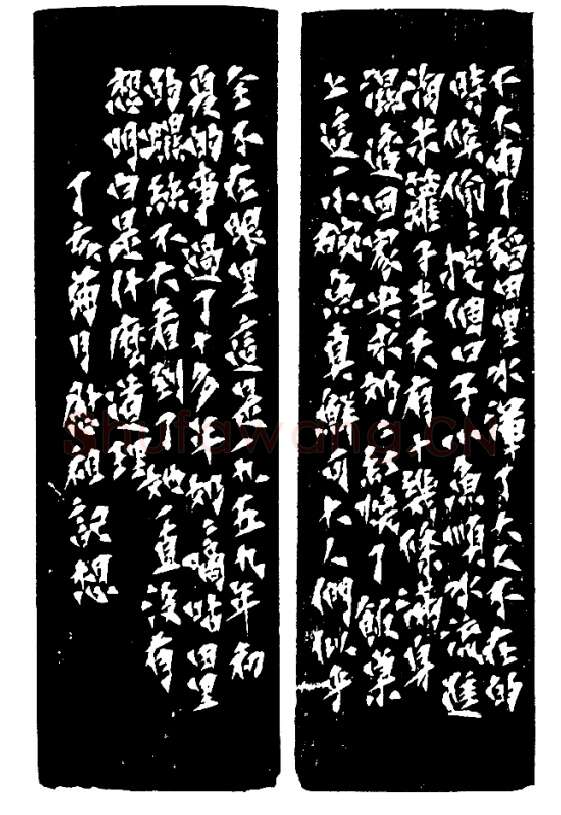 下大雨了稻田里水渾了大人不在的
時候偷〻挖個口子小魚順水流進
淘米籮子半天有十幾條滿身
濕透回家央求奶紅燒了飯桌
上這一小碗魚真鮮可大人們似乎
全不在眼里這是九五九年初
夏的事過了十多年奶〻嘀咕田里
的螺絲不大看到了她一直沒有
想明白是什麼道理
丁亥菊月 記想
Shufawang.CN